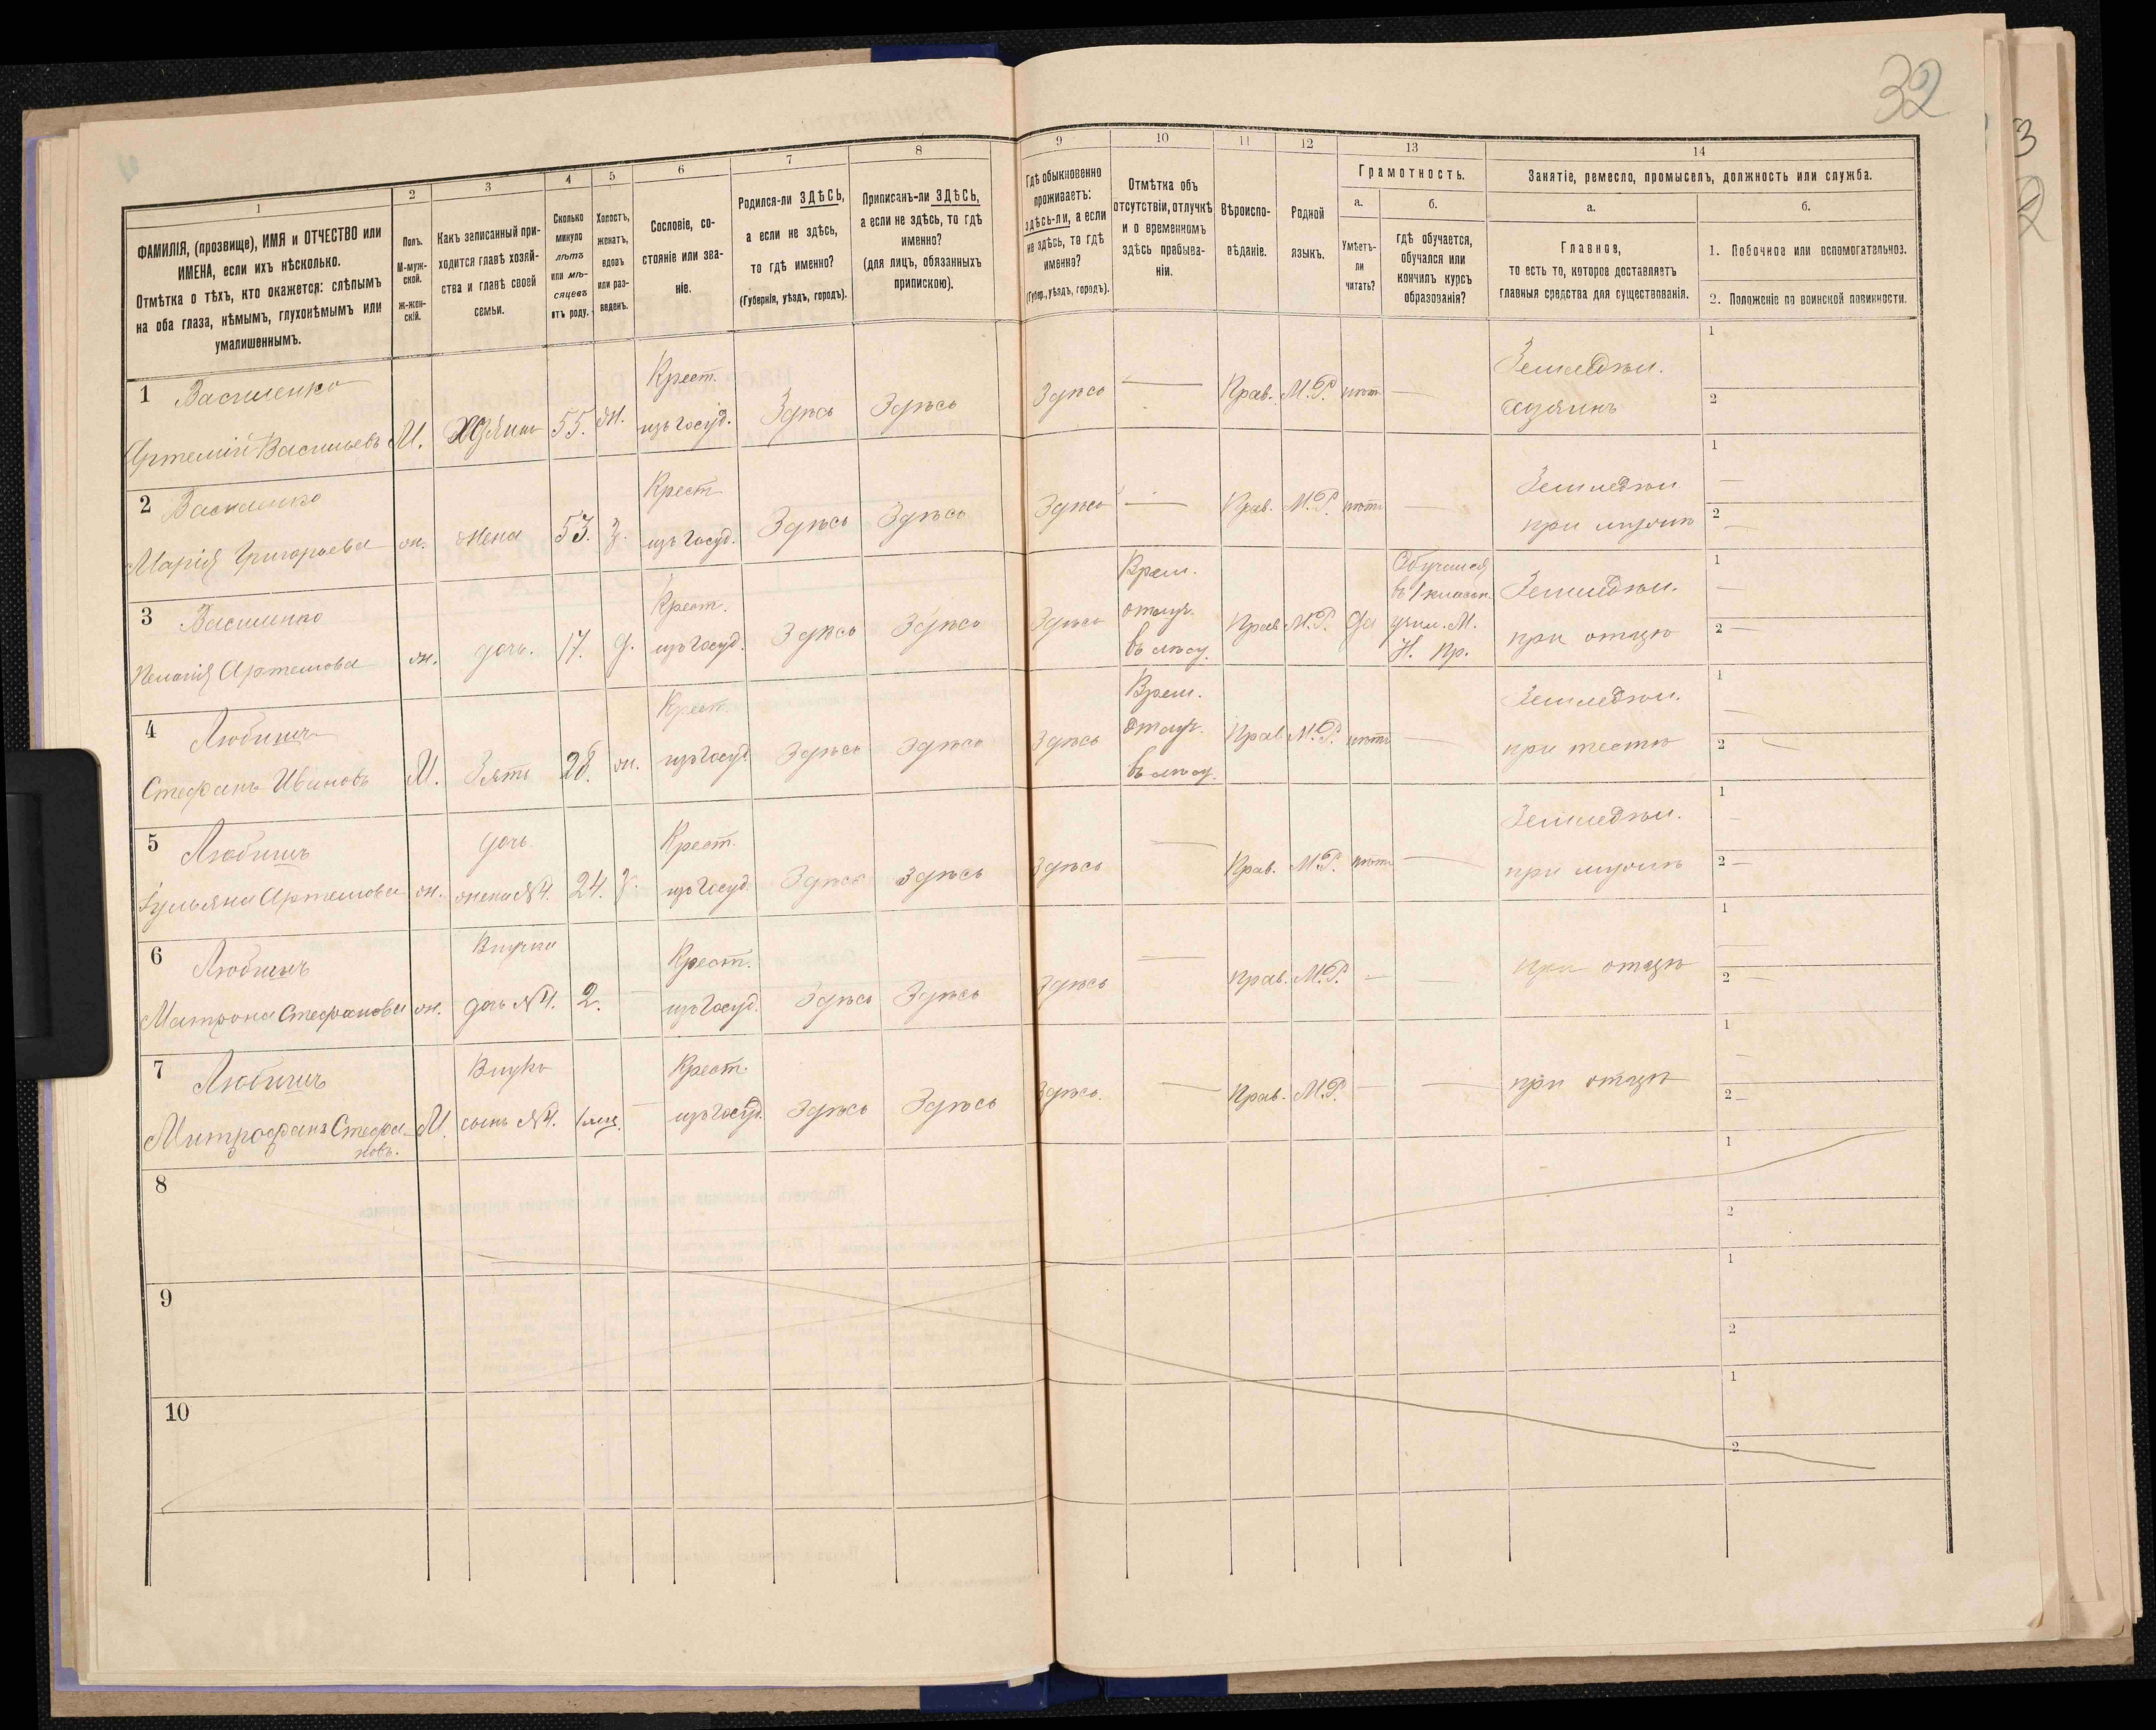 32
1
2
3
4
5
6
7
8
9
10
11
12
13
14
ФАМИЛІЯ, (прозвище), ИМЯ и ОТЧЕСТВО или
ИМЕНА, если ихъ нѣсколько.
Отмѣтка о тѣхъ, кто окажется: слѣпымъ
на оба глаза, нѣмымъ, глухонѣмымъ или
умалишеннымъ.
Полъ.
М-муж-
ской.
Ж-жен-
скій.
Какъ записанный при-
ходится главѣ хозяй-
ства и главѣ своей
семьи.
Сколько
минуло
лѣтъ
или мѣ-
сяцевъ
отъ роду.
Холостъ,
женатъ,
вдовъ
или раз-
веденъ.
Сословіе, со-
стояніе или зва-
ніе.
Родился-ли ЗДѢСЬ,
а если не здѣсь,
то гдѣ именно?
(Губернія, уѣздъ, городъ).
Приписанъ-ли ЗДѢСЬ,
а если не здѣсь, то гдѣ
именно?
(для лицъ, обязанныхъ
припискою).
Гдѣ обыкновенно
проживаетъ:
здѣсь-ли, а если
не здѣсь, то гдѣ
именно?
(Губер., уѣздъ, городъ).
Отмѣтка объ
отсутствіи, отлучкѣ
и о временномъ
здѣсь пребыва-
ніи.
Вѣроиспо-
вѣданіе.
Родной
языкъ.
Грамотность.
а.
Умѣетъ-
ли
читать?
б.
гдѣ обучается,
обучался или
кончилъ курсъ
образованія?
Занятіе, ремесло, промыселъ, должность или служба.
а.
Главное,
то есть то, которое доставляетъ
главныя средства для существованія.
б.
1. Побочное или вспомогательное.
2. Положеніе по воинской повинности.
1 Василенко
Артемій Васильевъ М. Хозяинъ 55. ж. Крест.
изъ госуд. Здѣсь Здѣсь Здѣсь — Прав. М.Р. нѣтъ — Земледѣл.
хозяинъ
1
2
2 Василенко
Марія Григорьева ж. жена 53. З. Крест
изъ госуд. Здѣсь Здѣсь Здѣсь — Прав. М.Р. нѣтъ — Земледѣл
при мужѣ
1 —
2 —
3 Василенко
Пелагія Артемова ж. дочь. 17. Д. Крест.
изъ госуд. Здѣсь Здѣсь Здѣсь Врем.
отлуч.
въ лѣсу. Прав М.Р. Да Обучался
въ 1 классн.
учил. М.
Н. Пр. Земледѣл.
при отцѣ
1 —
2 —
4 Любичъ
Стефанъ Ивановъ М. Зять 28. ж. Крест.
изъ госуд. Здѣсь Здѣсь Здѣсь Врем.
отлуч.
въ лѣсу. Прав М.Р. нѣтъ — Земледѣл.
при тестѣ
1 —
2 —
5 Любичъ
Ульяна Артемова ж. дочь
жена №4. 24. З. Крест.
изъ госуд. Здѣсь Здѣсь Здѣсь — Прав. М.Р. нѣтъ — Земледѣл.
при мужѣ
1 —
2 —
6 Любичъ
Матрона Стефанова ж. Внучка
дочь №4. 2. — Крест.
изъ госуд. Здѣсь Здѣсь Здѣсь — Прав. М.Р. — — при отцѣ
1 —
2 —
7 Любичъ
Митрофанъ Стефа-
новъ. М. Внукъ
сынъ №4. 1 мѣс. — Крест.
изъ госуд. Здѣсь Здѣсь Здѣсь. — Прав. М.Р. — — при отцѣ
1 —
2 —
8
1
2
9
1
2
10
1
2